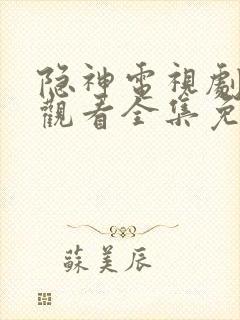 隐神電視劇
觀看全集免
蘇美辰